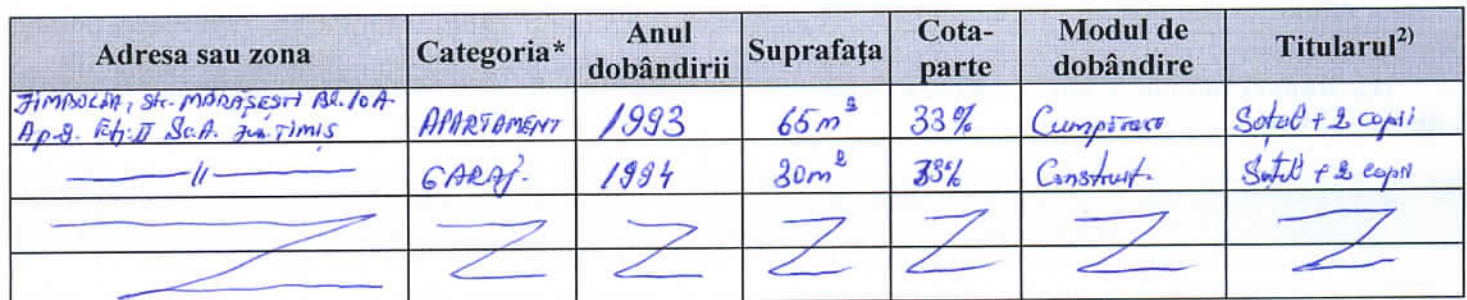 Adresa sau zona Categoria* Anul dobândirii Suprafaţa Cota-parte Modul de dobândire Titularul²⁾
JIMBOLIA, Str. MĂRĂȘEȘTI BL. 10A
Ap. 9. Etj: II Sc. A. Jud. TIMIȘ APARTAMENT 1993 65 m² 33% Cumpărare Soțul + 2 copii
—〃— GARAJ. 1994 30 m² 33% Construit. Soțul + 2 copii